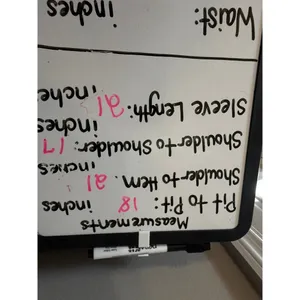 Measurements
Pit to Pit: 18 inches
Shoulder to Hem: 21 inches
Shoulder to Shoulder: 17 inches
Sleeve Length: 21 inches
Waist: inches